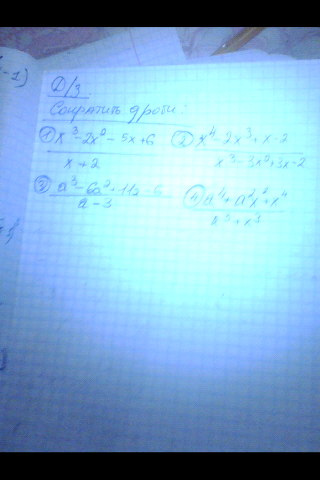 -1)
Д/з
Сократить дроби:
① x³-2x²-5x+6 / x+2 ② x⁴-2x³+x-2 / x³-3x²+3x-2
③ a³-6a²+11a-6 / a-3 ④ a⁴+a²x²+x⁴ / a³+x³